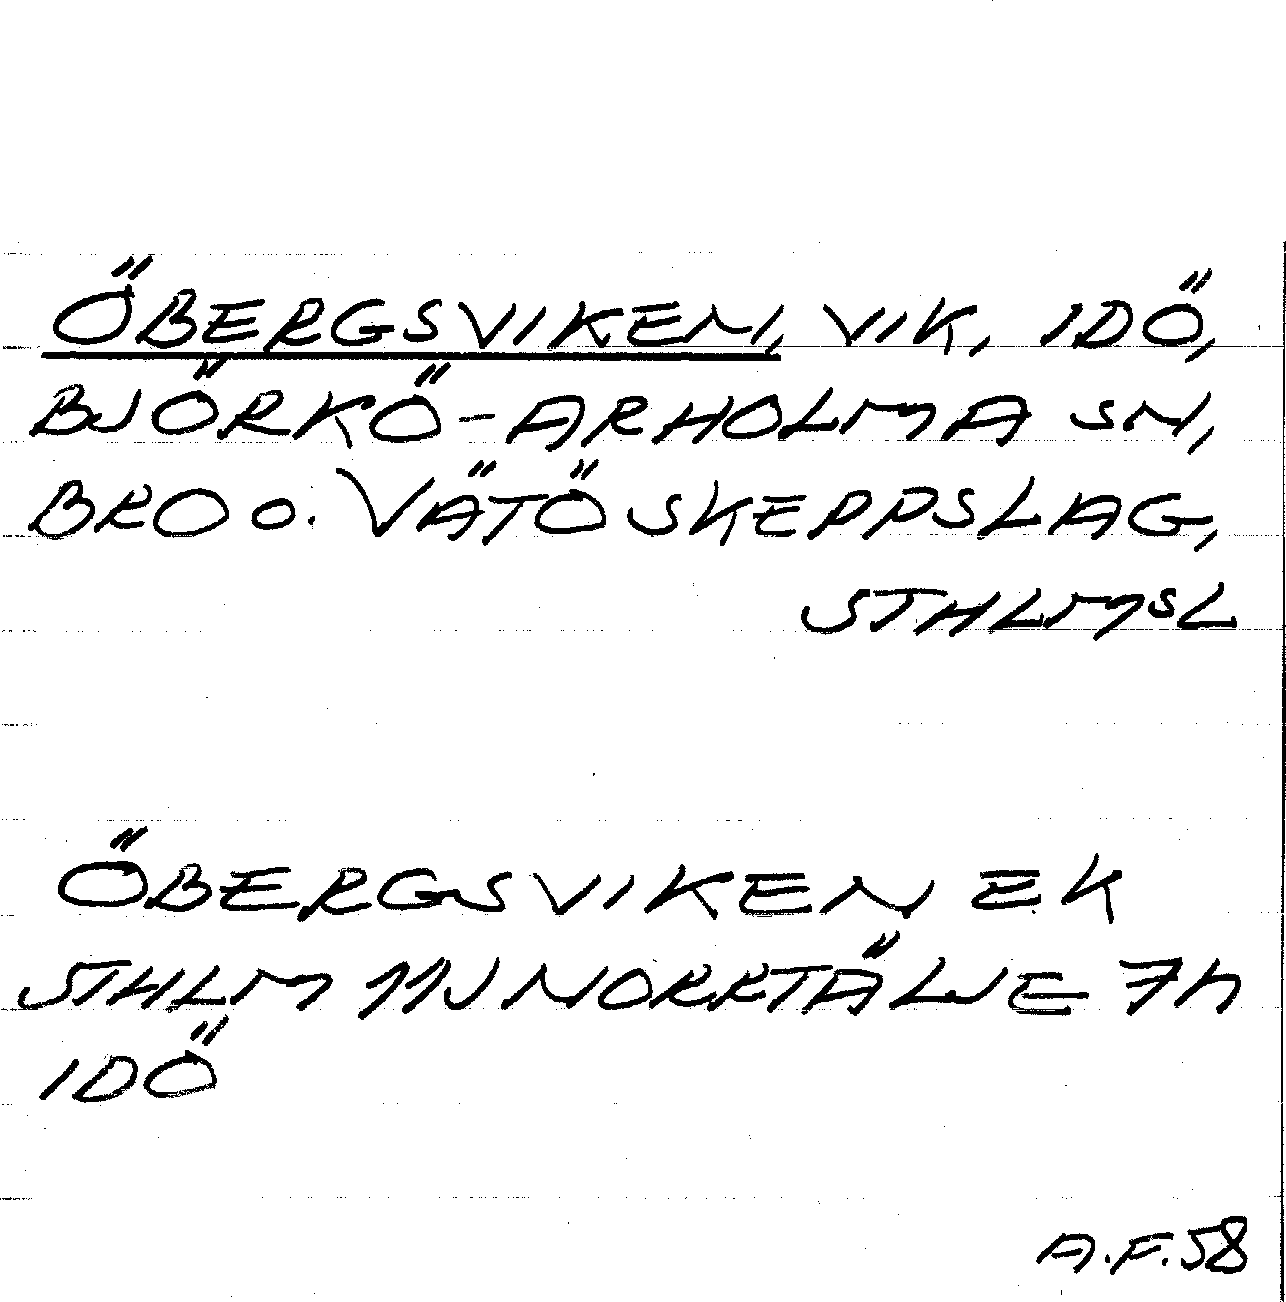 ÖBERGSVIKEN, VIK, IDÖ,
BJÖRKÖ-ARHOLMA SN,
BRO O. VÄTÖ SKEPPSLAG,
STHLMSL
ÖBERGSVIKEN EK
STHLM 11J NORRTÄLJE 7h
IDÖ
A.F.58